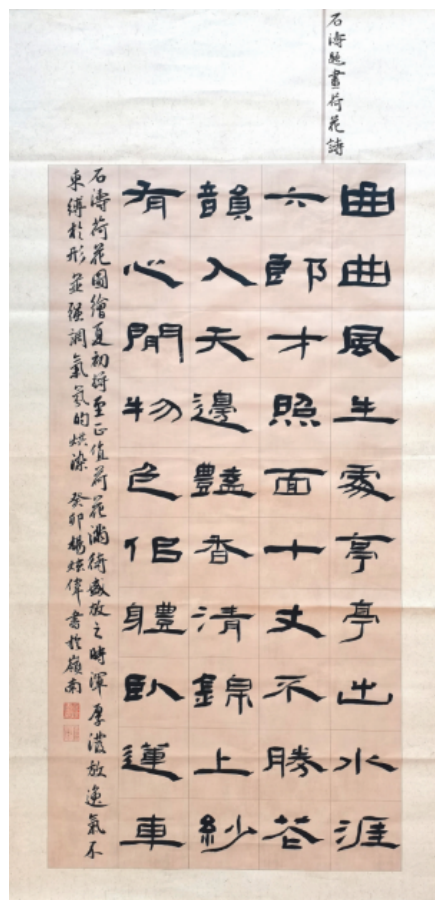 石濤題畫荷花詩
曲曲風生處亭亭出水涯
六郎才照面十丈不勝花
韻入天邊豔香清錦上紗
有心閒物色體臥蓮車
石濤荷花圖繪夏初將至正值荷花滿待盛放之時渾厚放逸氣不
束縛於形並強調氣氛的烘染 癸卯楊煥偉書於嶺南